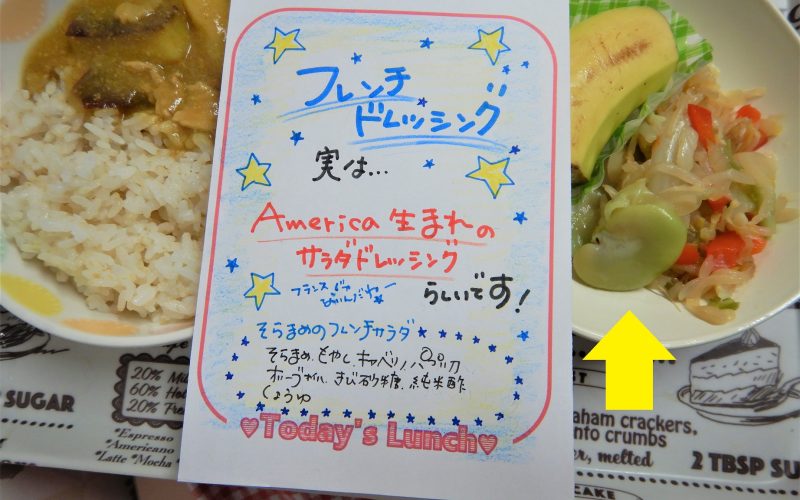 フレンチ
ドレッシング
実は...
America生まれの
サラダドレッシング
フランスじゃ
ないんだね
らしいです!
そらまめのフレンチサラダ
そらまめ、もやし、キャベツ、パプリカ
オリーブオイル、きび砂糖、純米酢
しょうゆ
♥Today's Lunch♥
SUGAR
20%
60%
20%
*Espresso
*Americano
*Latte *Mocha
graham crackers,
into crumbs
melted
2 TBSP SU
CAKE